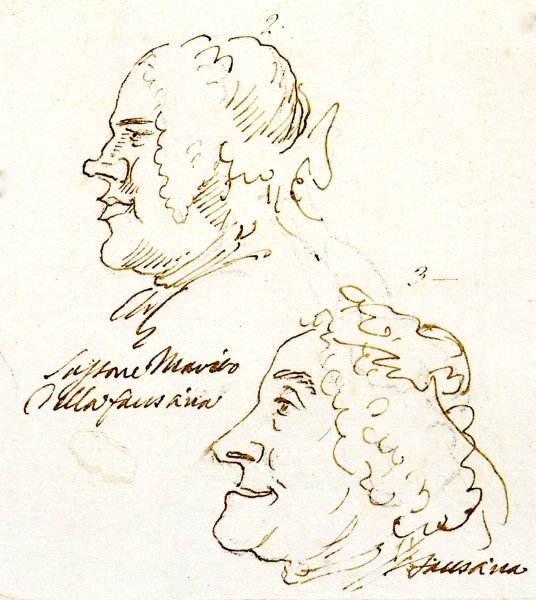 2.
Sassone Marito
Della faustina
3—
Faustina